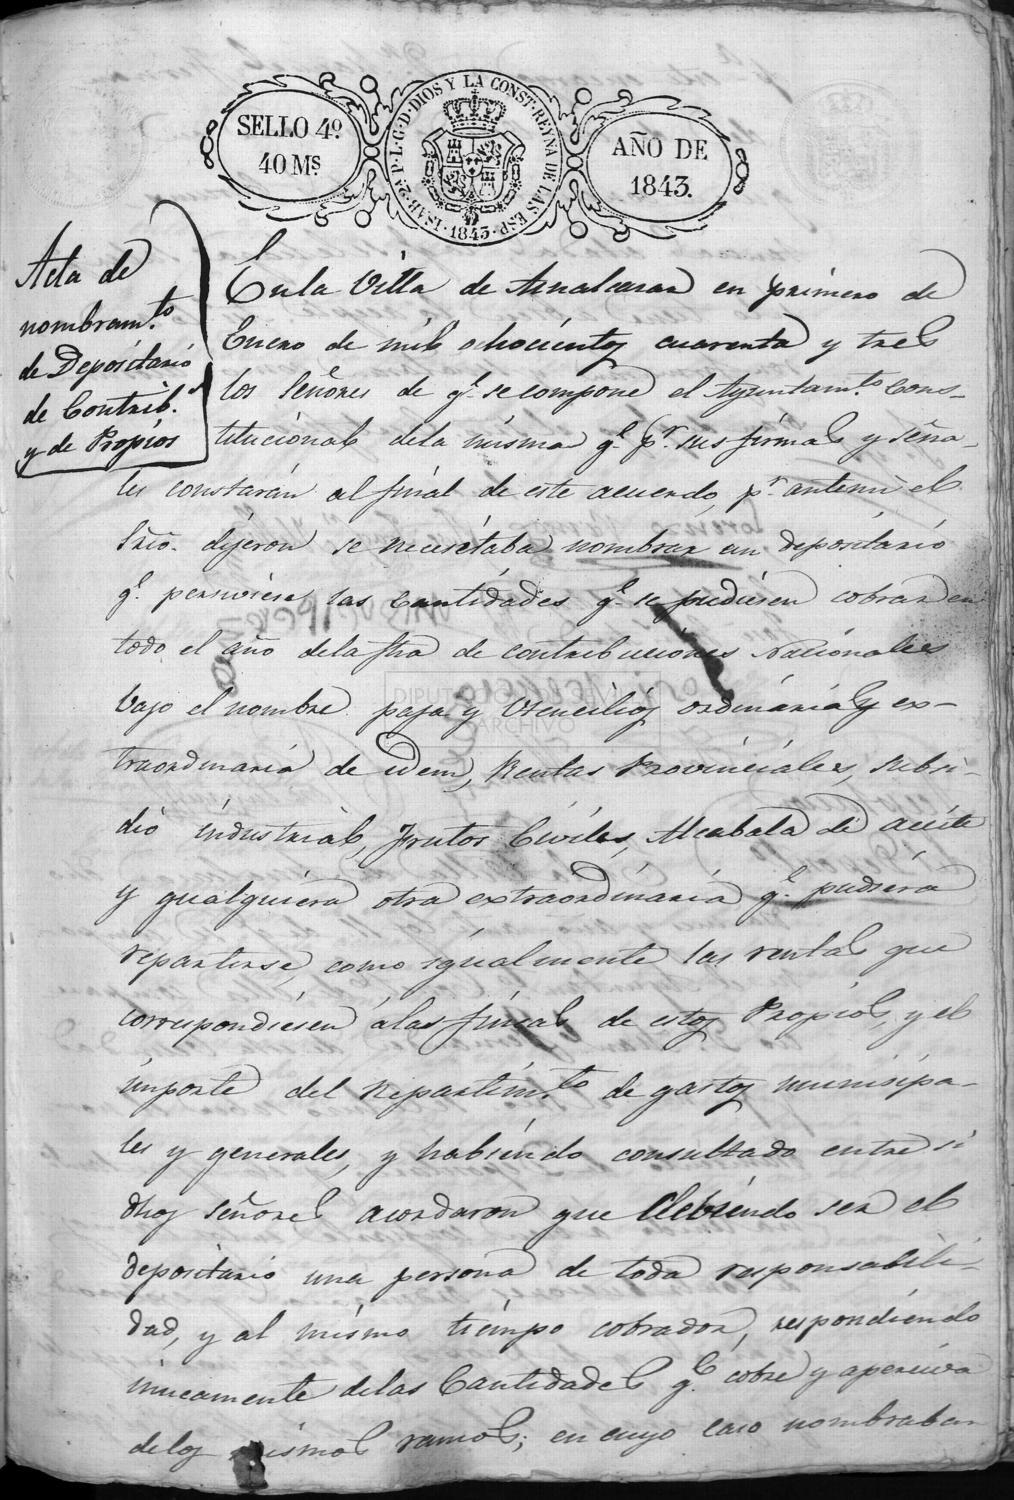 SELLO 4º
40 Mˢ
ISAB. 2ª P. L. G. D. DIOS Y LA CONST. REYNA DE LAS ESP. 1843.
AÑO DE
1843.
Acta de
nombram.to
de Depositario
de Contrib.s
y de Propios
En la Villa de Aznalcazar en primero de
Enero de mil ochocientos cuarenta y tres
los Señores de q.e se compone el Ayuntam.to Cons-
titucional de la misma q.e p.r sus firmas y seña-
les constarán al final de este acuerdo, p.r antemi el
Srio. dijeron se necesitaba nombrar un depositario
q.e perciviese las cantidades q.e se pudiesen cobrar en
todo el año de la fha de contribuciones Nacionales
bajo el nombre paja y Utencilios ordinaria y ex-
traordinaria de idem, Rentas Provinciales, subsi-
dio industrial, Frutos Civiles, Alcabala de aceite
y qualquiera otra extraordinaria q.e pudiera
repartirse, como igualmente las rentas que
correspondiesen á las fincas de estos Propios, y el
importe del Repartim.to de gastos municipa-
les y generales, y habiendo consultado entre si
dhos señores acordaron que debiendo ser el
depositario una persona de toda responsabili-
dad, y al mismo tiempo cobrador, respondiendo
unicamente de las Cantidades q.e cobre y aperciva
de los mismos ramos; en cuyo caso nombraban
DIPUTACIÓN DE SEVILLA
ARCHIVO